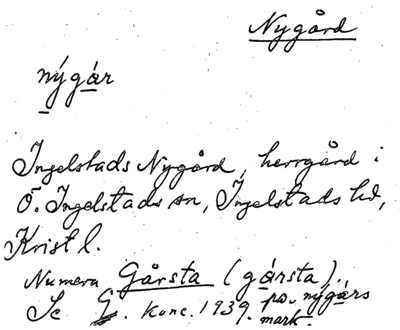 Nygård
nýgár
Ingelstads Nygård, herrgård i
Ö. Ingelstads sn, Ingelstads hd,
Krist l.
Numera Gårsta (gársta).
Se G. konc. 1939. på. nýgárs
mark.